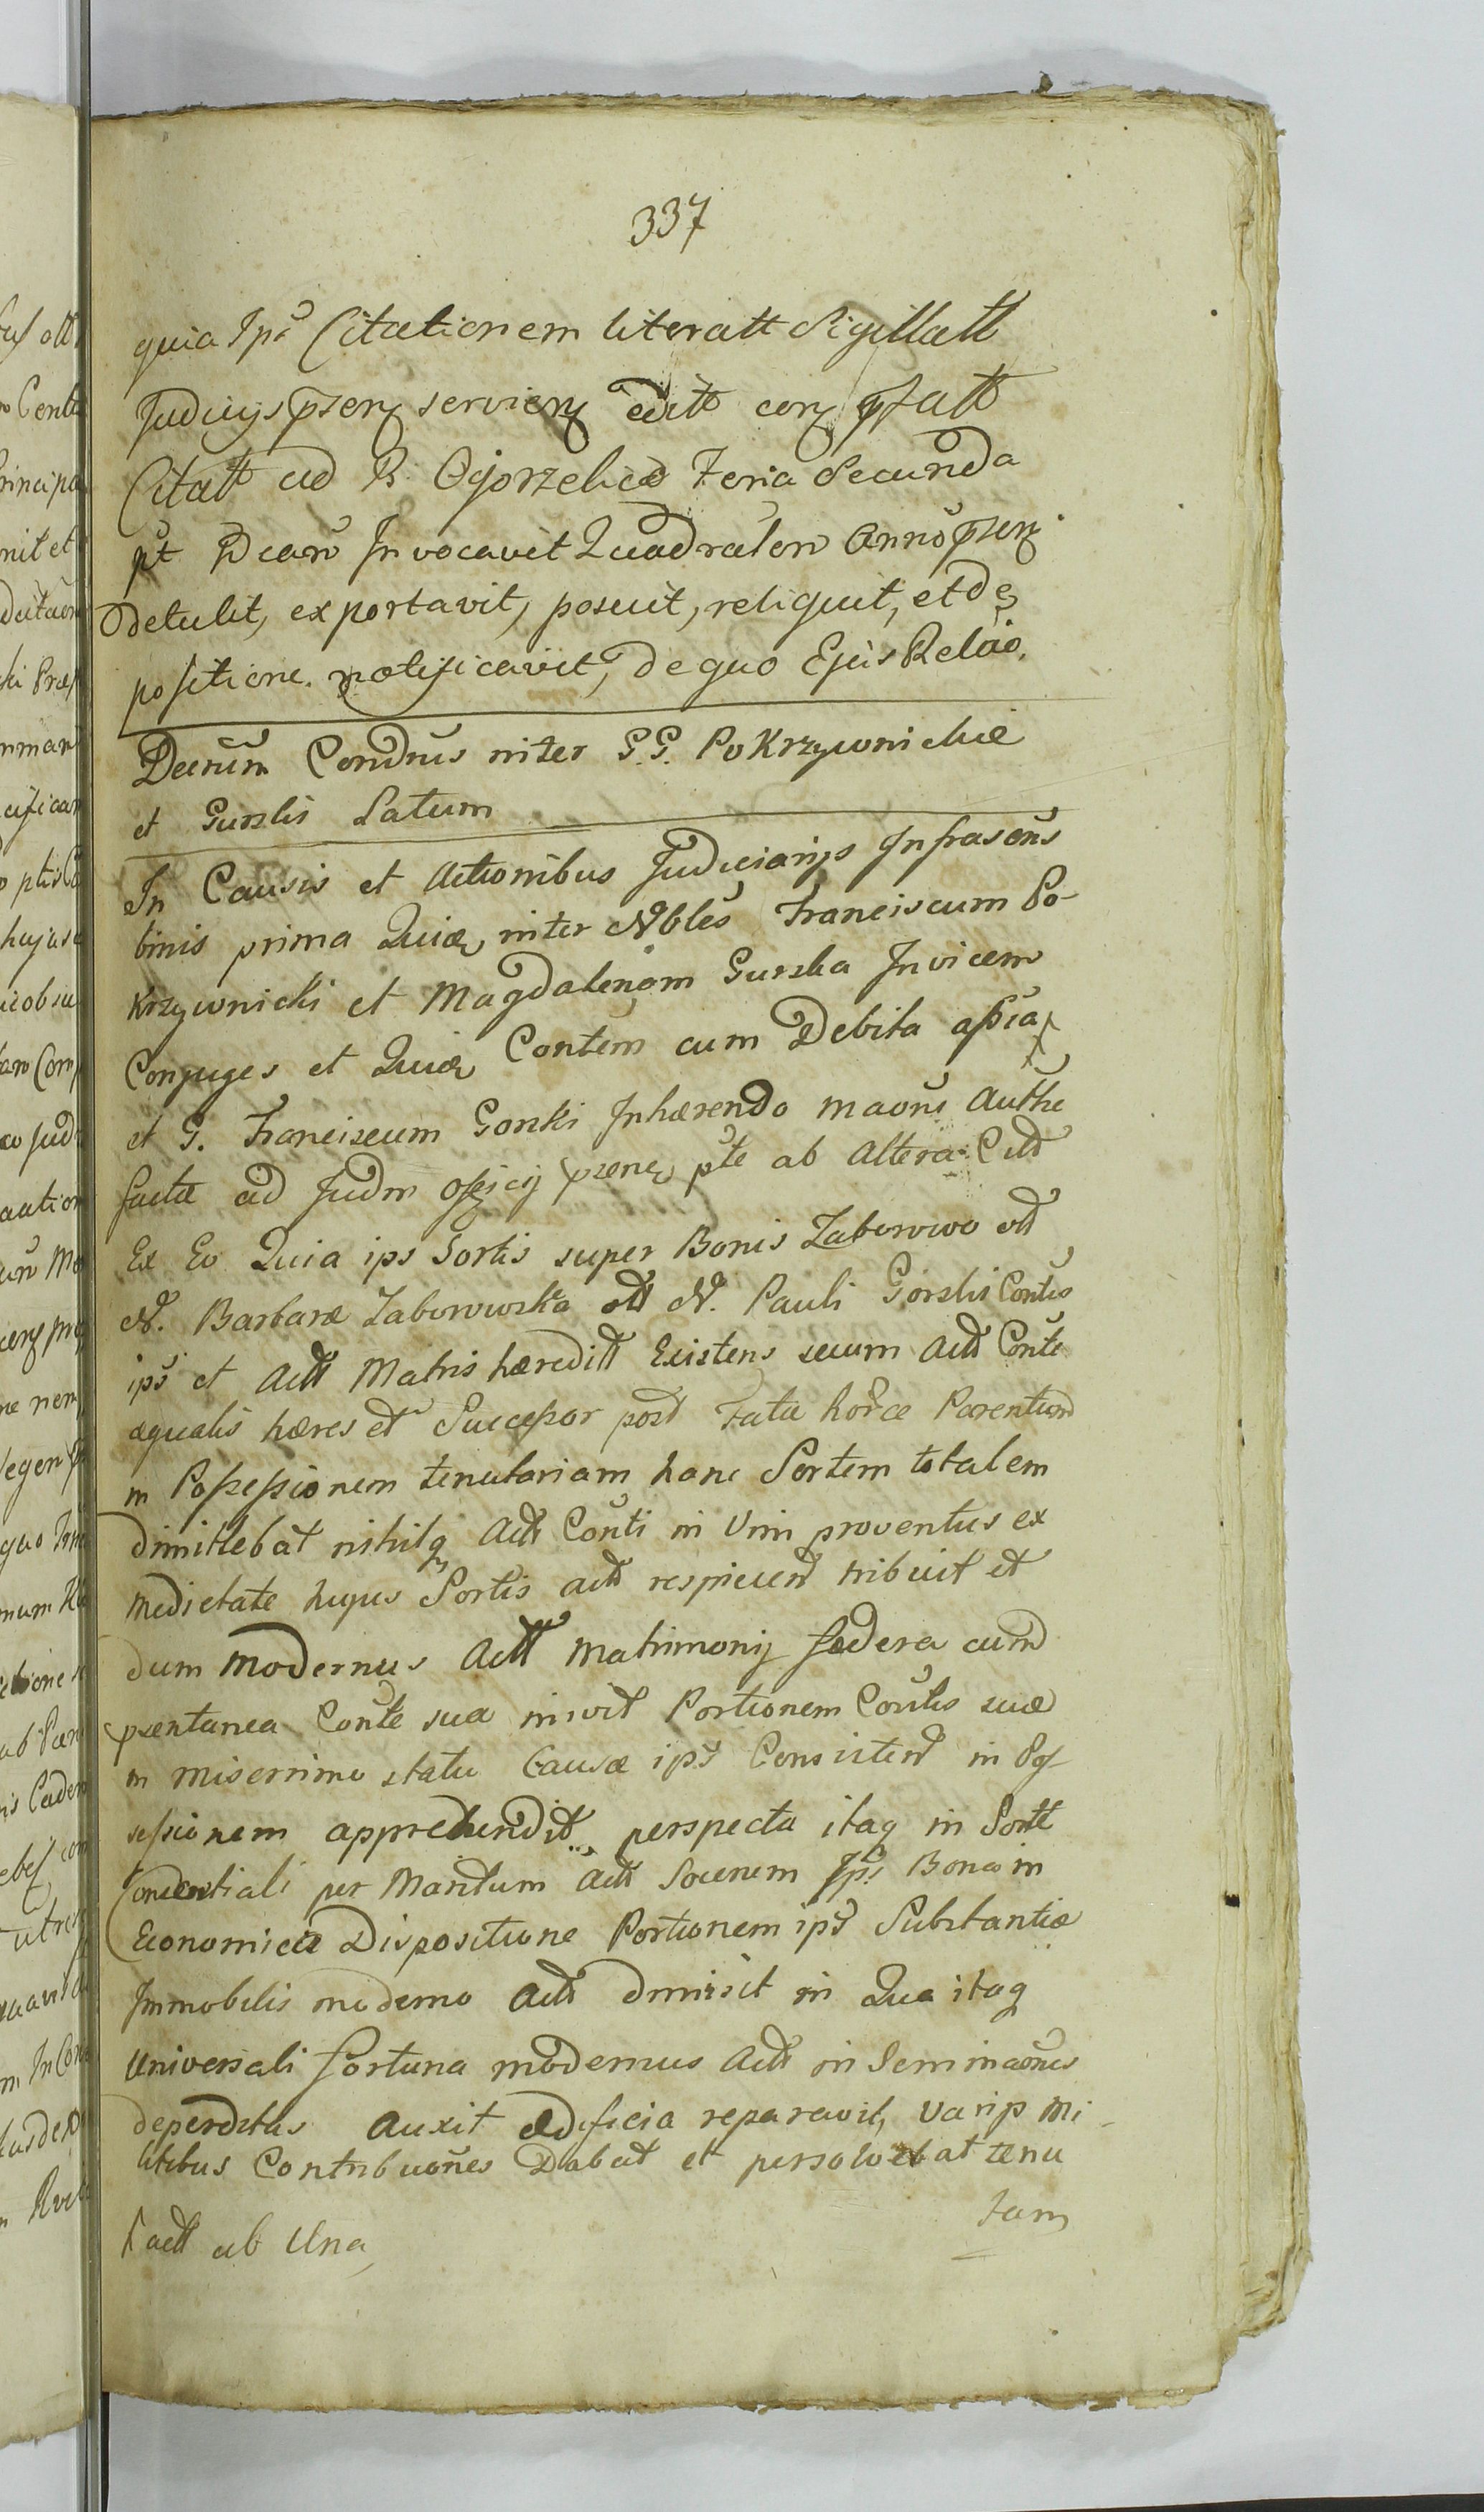 337
quia Ips Citationem literatt Sigillatt
Judicijs psenz servienz editt conz pfatt
Citatt ad B. Ogorzelice Feria Secunda
pt Dcam Invocavit Quadralem Anno psenz
detulit, exportavit, posuit, reliquit, et de
positione notificavit, de quo Ejus Relao.
Decrum Condnus inter G.G. Pokrzywnickie
et Gurskis Latum
In Causis et Actionibus Judiciarijs Infrascris
binis prima Quia inter Nbles Franciscum Po-
krzywnicki et Magdalenam Gurska Invicem
Conjuges et Quia Contem cum Debita assia
et G. Franciscum Gorski Inhærendo maone Authe
facta ad Judm officij psene pte ab Altera Citt
Ex Eo Quia ips Sortis super Bonis Zaborowo ott
N. Barbaræ Zaborowska ott N. Pauli Gorski Contis
ips et Actt Matris hæreditt Existens secum Actt Conte
æqualis hæres et Successor post Fata horce Parentum
in Possessionem tenutariam hanc Sortem totalem
dimittebat nihilq Actt Conti in Vim proventus ex
Medietate hujus Sortis actt respiciend tribuit et
dum modernus Actt Matrimonij fædera cum
psentanea Conte sua inivit Portionem Contis suæ
in miserrimo statu Causæ ips Consistend in Pos-
sessionem apprehendit, perspecta itaq in Sorte
per Maritum Actt Socerem Ips Bona in
Economica Dispositione Portionem ips Substantiæ
Immobilis moderno Actt dmisit in Qua itaq
Universali fortuna modernus Actt in Seminaones
deperditas Auxit ædificia reparavit, Varijs Mi-
litibus Contribuones Dabat et persolvebat tenu
tam
actt ab Una